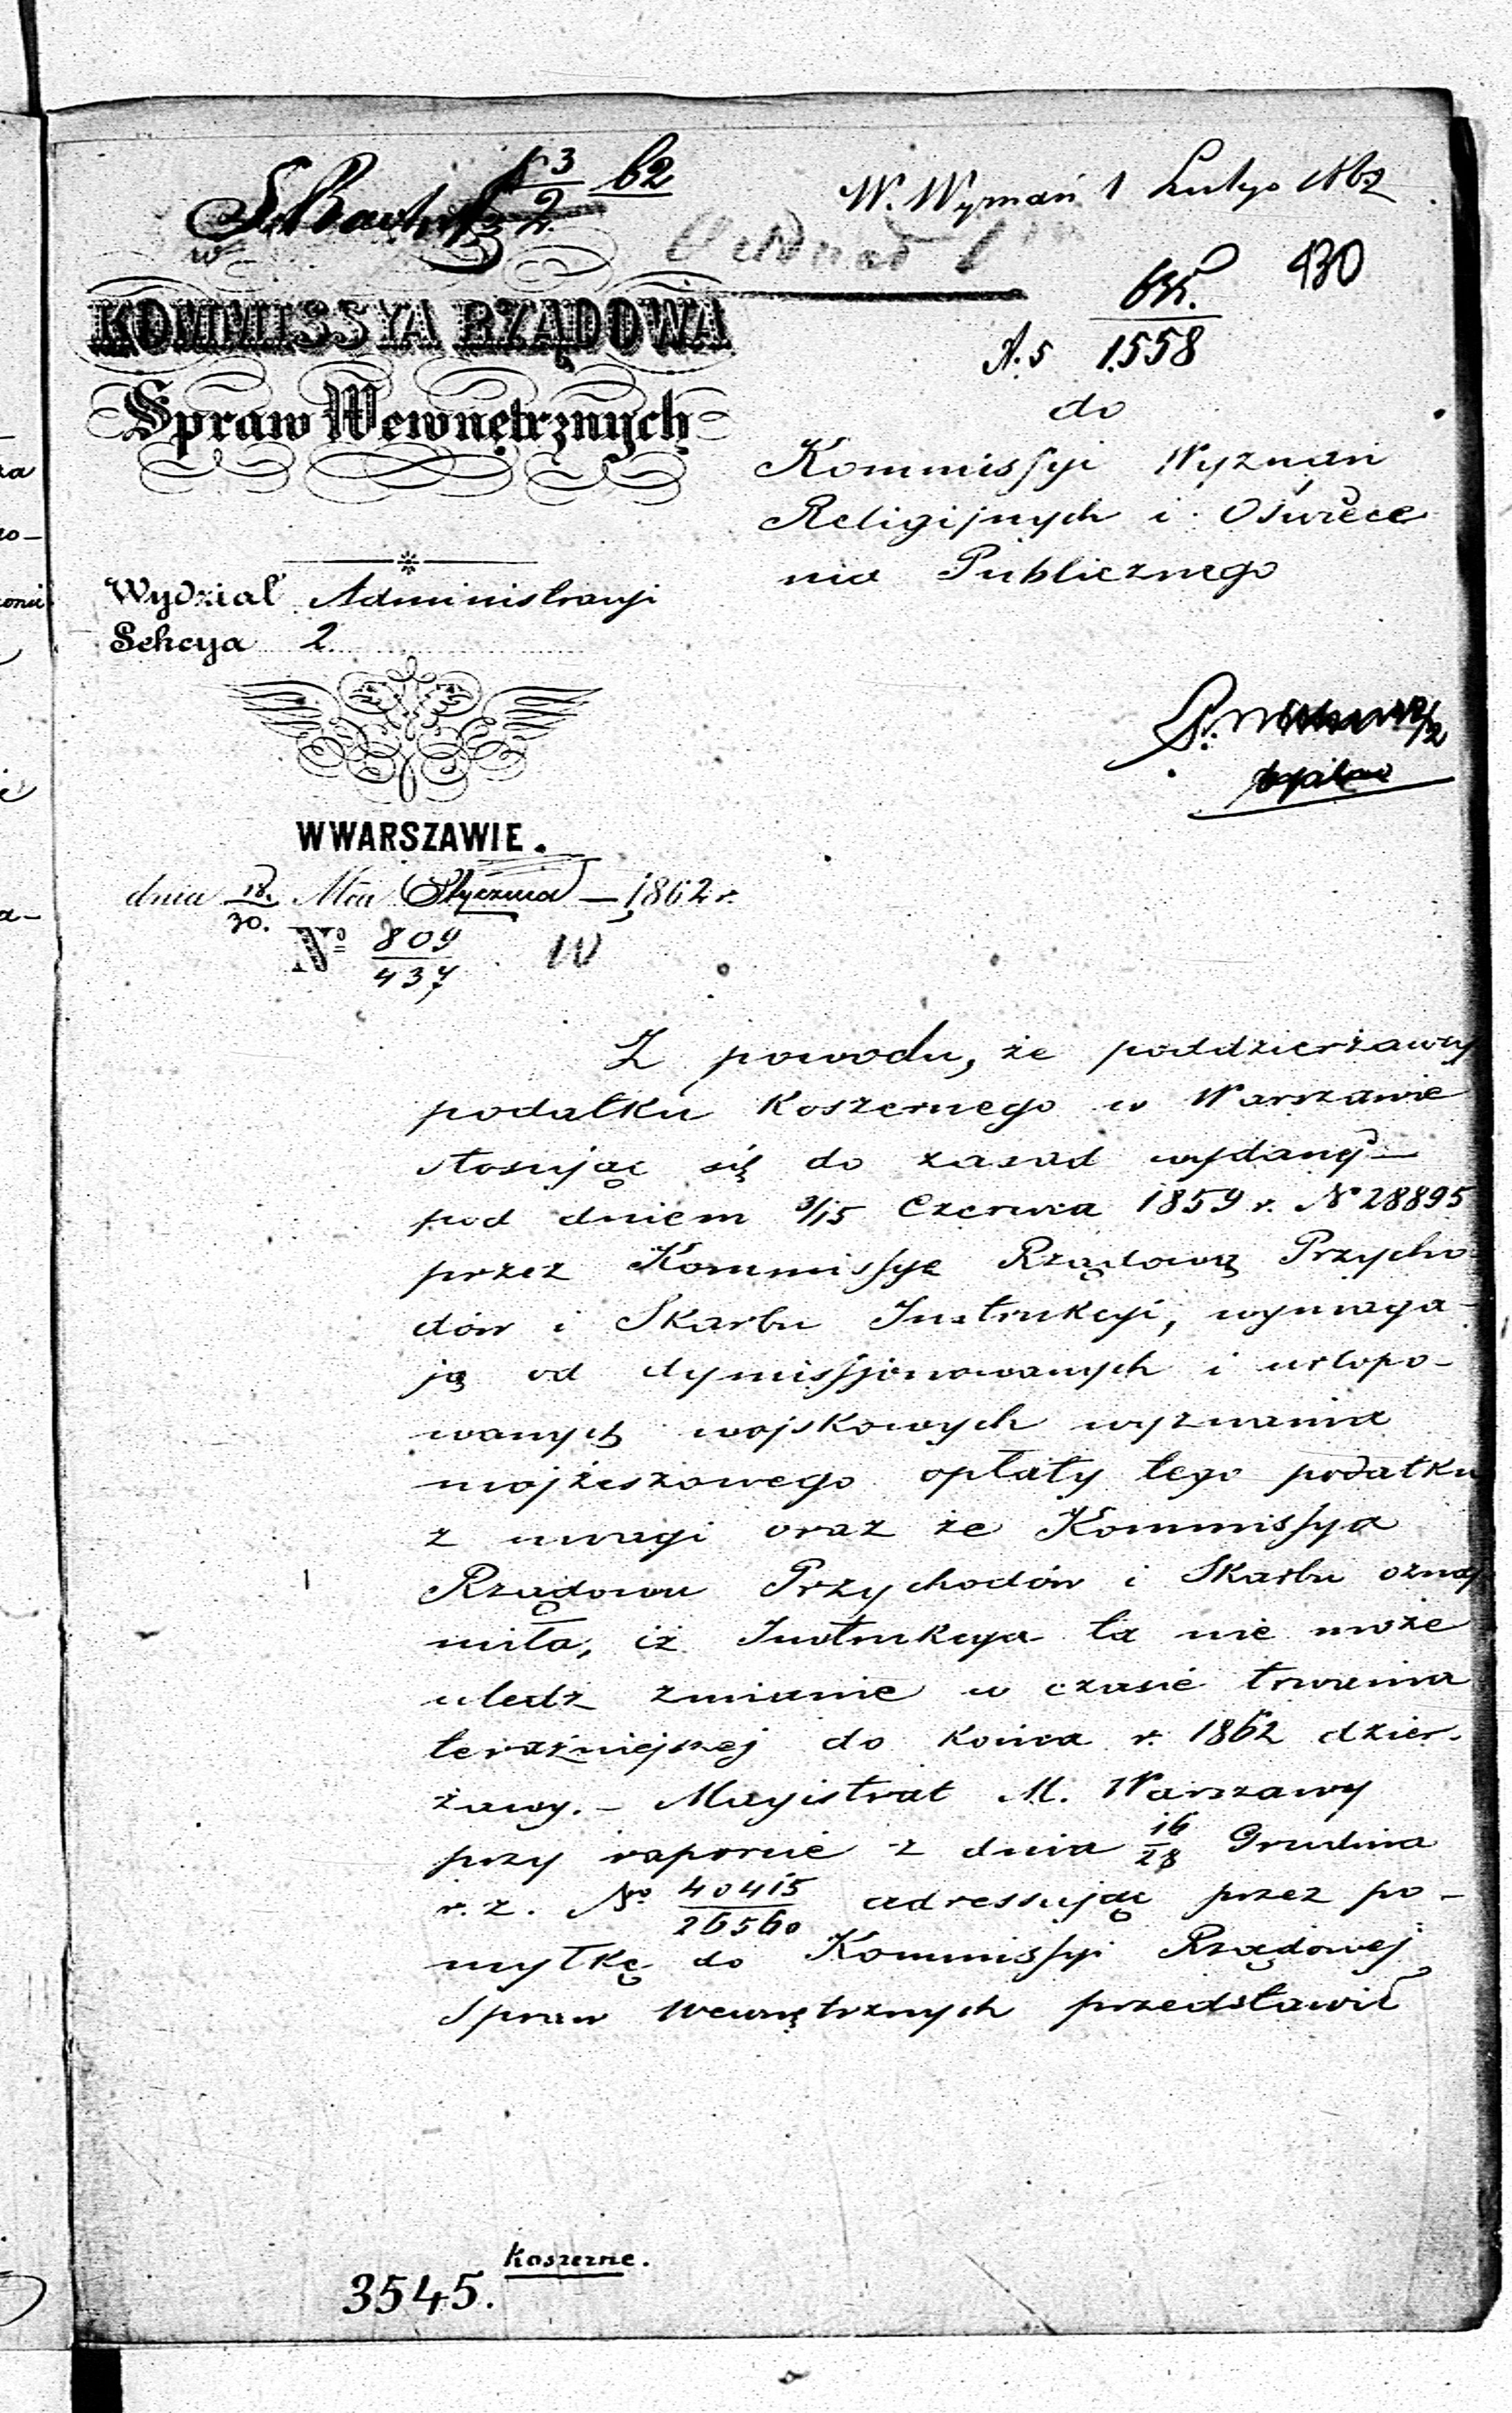 3/2 62
W. Wyznań 1 Lutego 1862
430
1558
do
KOMMISSYA RZĄDOWA
Spraw Wewnętrznych
Kommissyi Wyznań
Religijnych i Oświece
nia Publicznego
Wydział Administracyi
Sekcya 2
W WARSZAWIE.
dnia 18/30. Mca Stycznia 1862 r.
No 809/437
Z powodu, że poddzierżawcy
podatku koszernego w Warszawie
stosując się do zasad wydanej
pod dniem 3/15 Czerwca 1859 r. No 28895
przez Kommissyę Rządową Przycho
dów i Skarbu Instrukcyi, wymaga-
ją od dymissjonowanych i urlopo-
wanych wojskowych wyznania
mojżeszowego opłaty tego podatku
z uwagi oraz że Kommissya
Rządowa Przychodów i Skarbu oznaj
miła, iż Instrukcya ta nie może
uledz zmianie w czasie trwania
teraźniejszej do końca r. 1862 dzier-
żawy. – Magistrat M. Warszawy
przy raporcie z dnia 16/28 Grudnia
r. z. No 40415/26560 adressując przez po-
myłkę do Kommissyi Rządowej
Spraw Wewnętrznych przedstawił
koszerne.
3545.